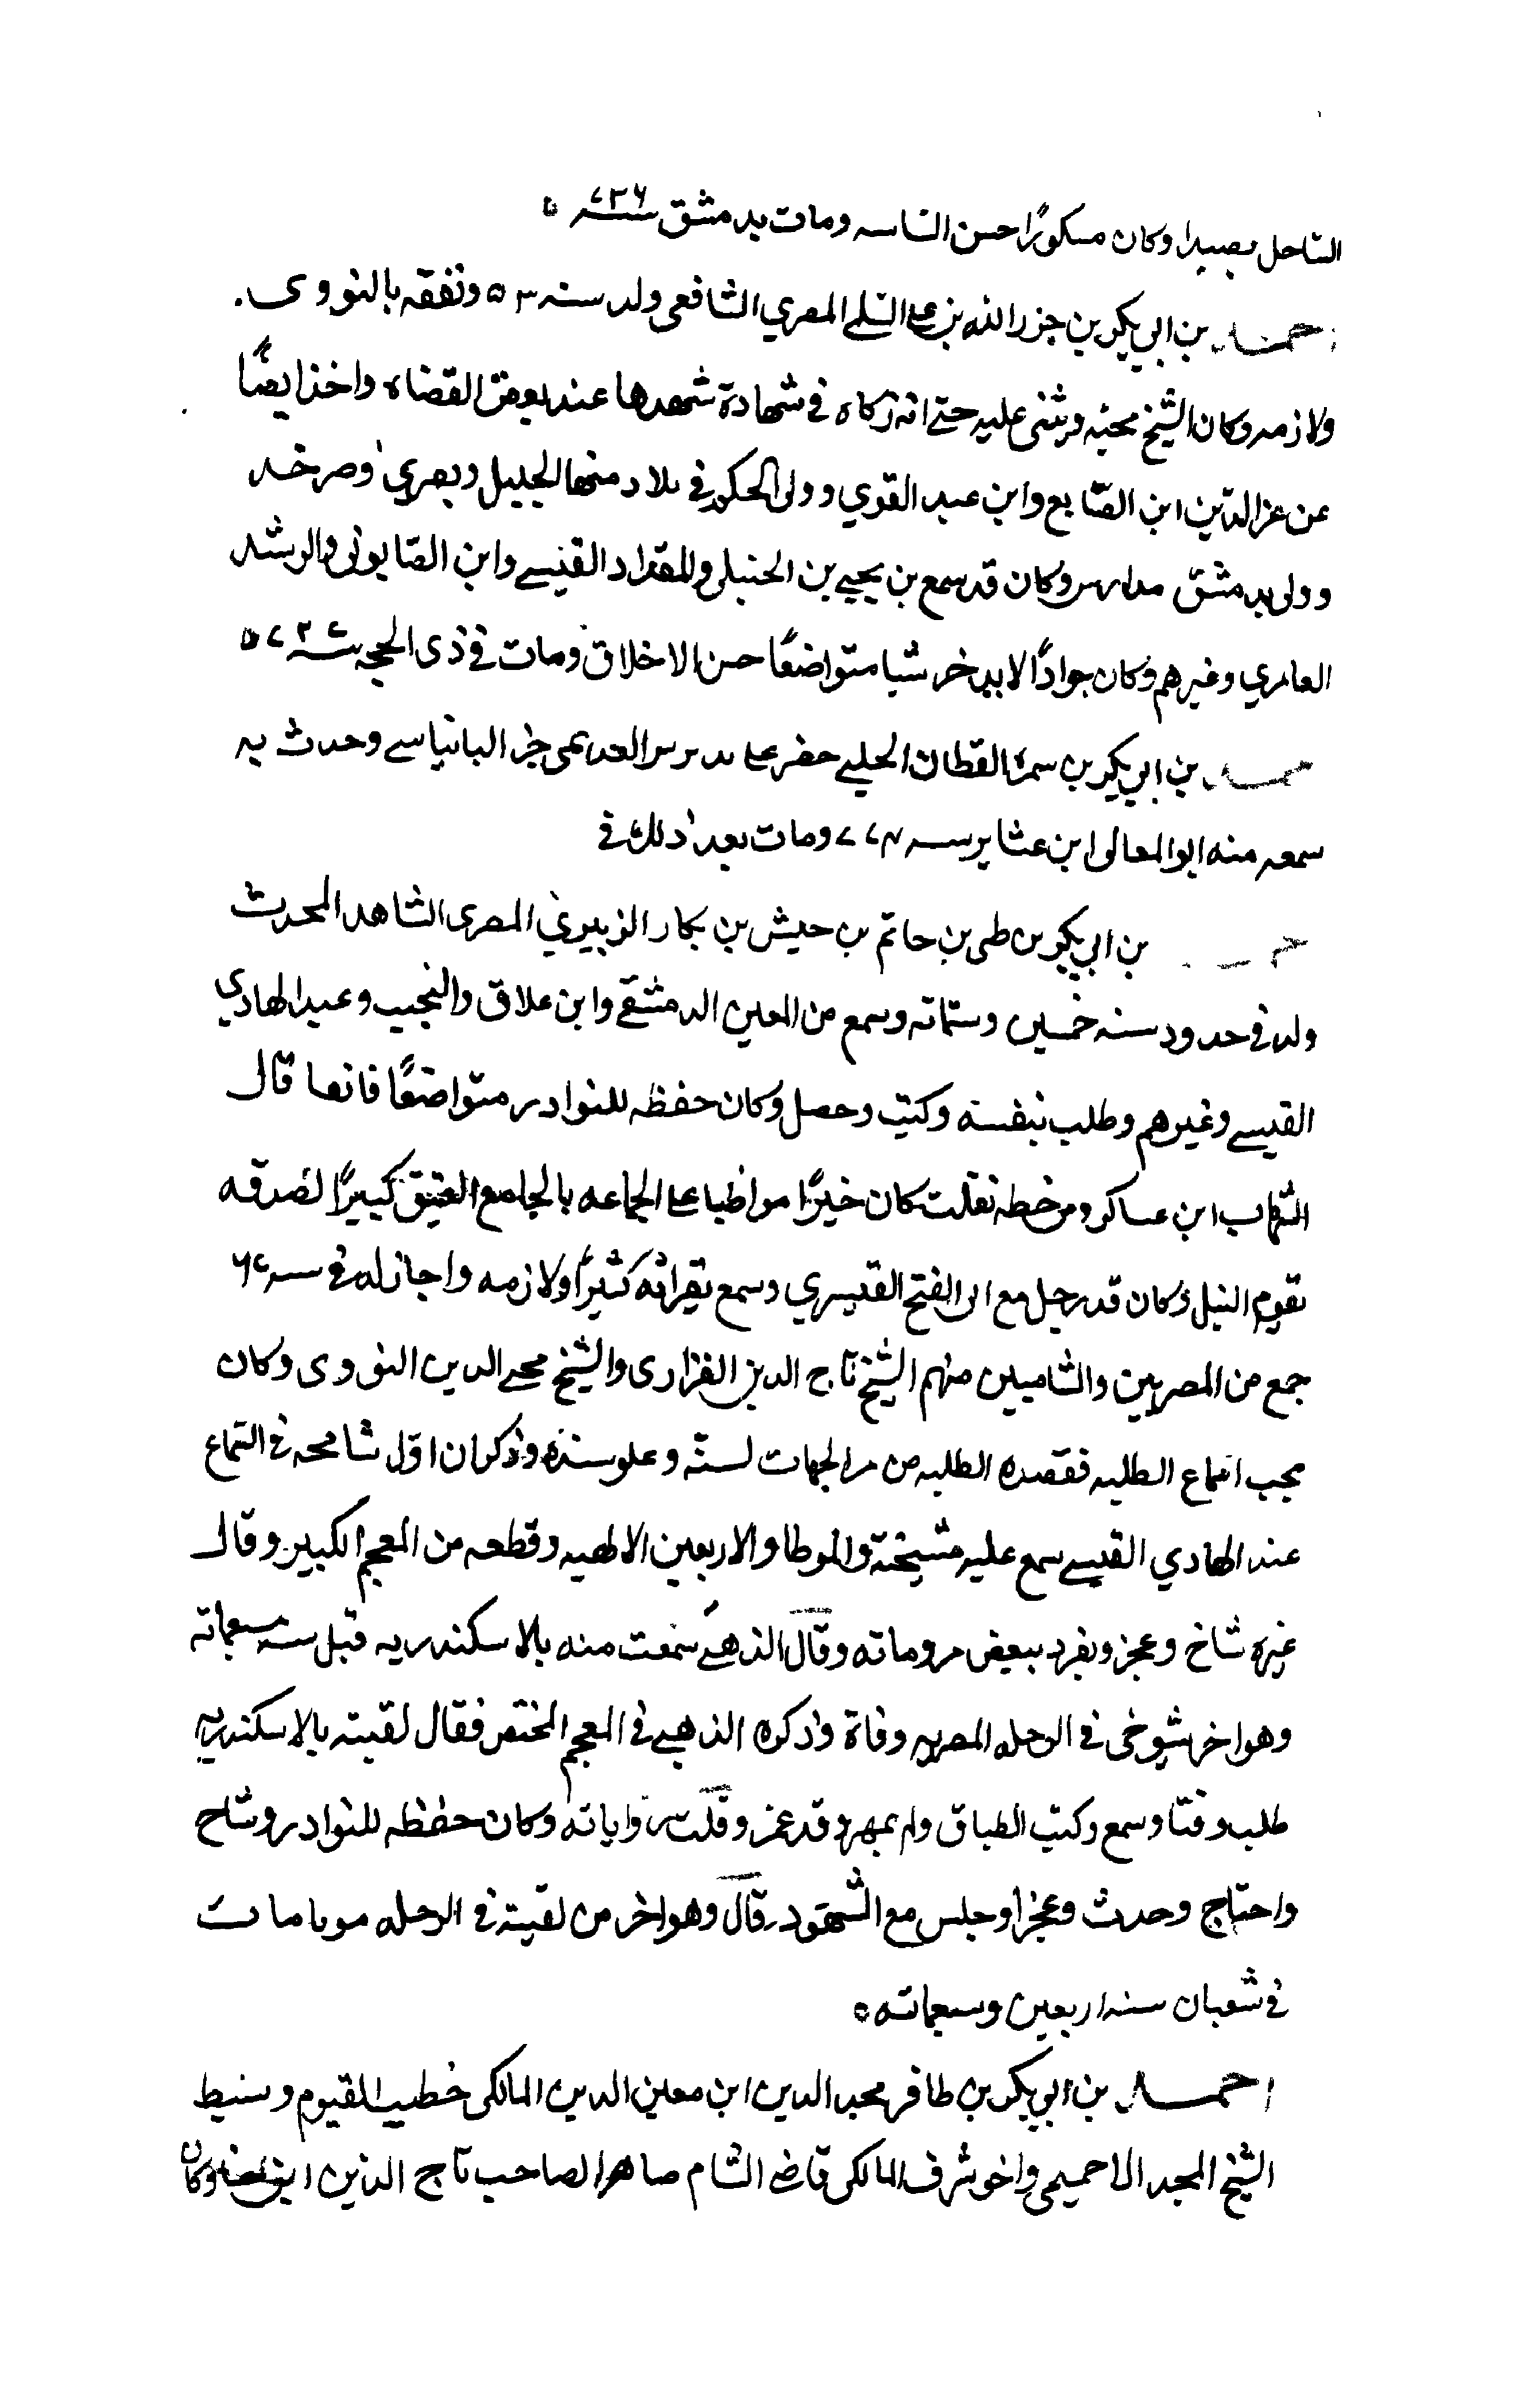 الساحل بصيدا وكان مشكورًا حسن الناسه ومات بدمشق سنة ٧٣٦ ه
احمد بن ابي بكر بن حرز الله بن علي السلمي المصري الشافعي ولد سنه ٥٣ وتفقه بالنووى.
ولازمه وكان الشيخ يحبه ويثنى عليه حتى انه زكاه في شهادة شهدها عند بعض القضاه واخذ ايضًا
عن عز الدين ابن الصايع وابن عبد القوي وولى الحكم في بلاد منها الجليل وبصرى وصرخد
وولى بدمشق مدارس وكان قد سمع بن يحيى بن الحنبلي والمقداد القيسي وابن الصابونى والرشد
العامري وغيرهم وكان جوادًا لا يدخر شيا متواضعًا حسن الاخلاق ومات في ذى الحجه سنة ٧٢٤ ه
احمد بن ابي بكر بن سمره القطان الحلبي حضر على العديمى جزء البانياسي وحدث به
سمعه منه ابو المعالى ابن عشاير سنه ٧٧٣ ومات بعد ذلك في
احمد بن ابي بكر بن طى بن حاتم بن حيش بن بكار الزبيري المصرى الشاهد المحدث
ولد في حدود سنه خمسين وستمائه وسمع من المعين الدمشقي وابن علاق والنجيب وعبد الهادي
القيسي وغيرهم وطلب بنفسه وكتب وحصل وكان حفظه للنوادر متواضعًا قانعا قال
الشهاب ابن عساكر ومن خطه نقلت كان خيرًا مواظبا على الجماعه بالجامع العتيق كبيرًا لصدقه
تقويم النيل وكان قد رحل مع ابى الفتح القيسري وسمع بقراته كثيرًا ولازمه واجاز له في سنه ٦٤
جمع من المصريين والشاميين منهم الشيخ تاج الدين الفزارى والشيخ محي الدين النووى وكان
يحب اسماع الطلبه فقصده الطلبه من الجهات لسنه وعلو سنده وذكر ان اول مشايخه في السماع
عبد الهادي القيسي سمع عليه مشيخته والموطا والاربعين الالهيه وقطعه من المعجم الكبير وقال
غيره شاخ وعجز وتفرد ببعض مروياته وقال الذهبي سمعت منه بالاسكندريه قبل سنة سبعمائه
وهو اخر شيوخى في الرحله المصريه وفاة وذكره الذهبي في المعجم المختص فقال لقيته بالاسكندريه
طلب وقتا وسمع وكتب الطباق ولم يمهر وقد عمر وقلت رواياته وكان حفظه للنوادر وشاخ
واحتاج وحدث وعجز وجلس مع الشهود قال وهو اخر من لقيته في الرحله موتا مات
في شعبان سنه اربعين وسبعمائه ه
احمد بن ابي بكر بن ظافر مجد الدين ابن معين الدين المالكى خطيب الفيوم وسبط
الشيخ المجد الاخميمى واخو شرف المالكى قاضى الشام صاهر الصاحب تاج الدين ابن حنا وكان